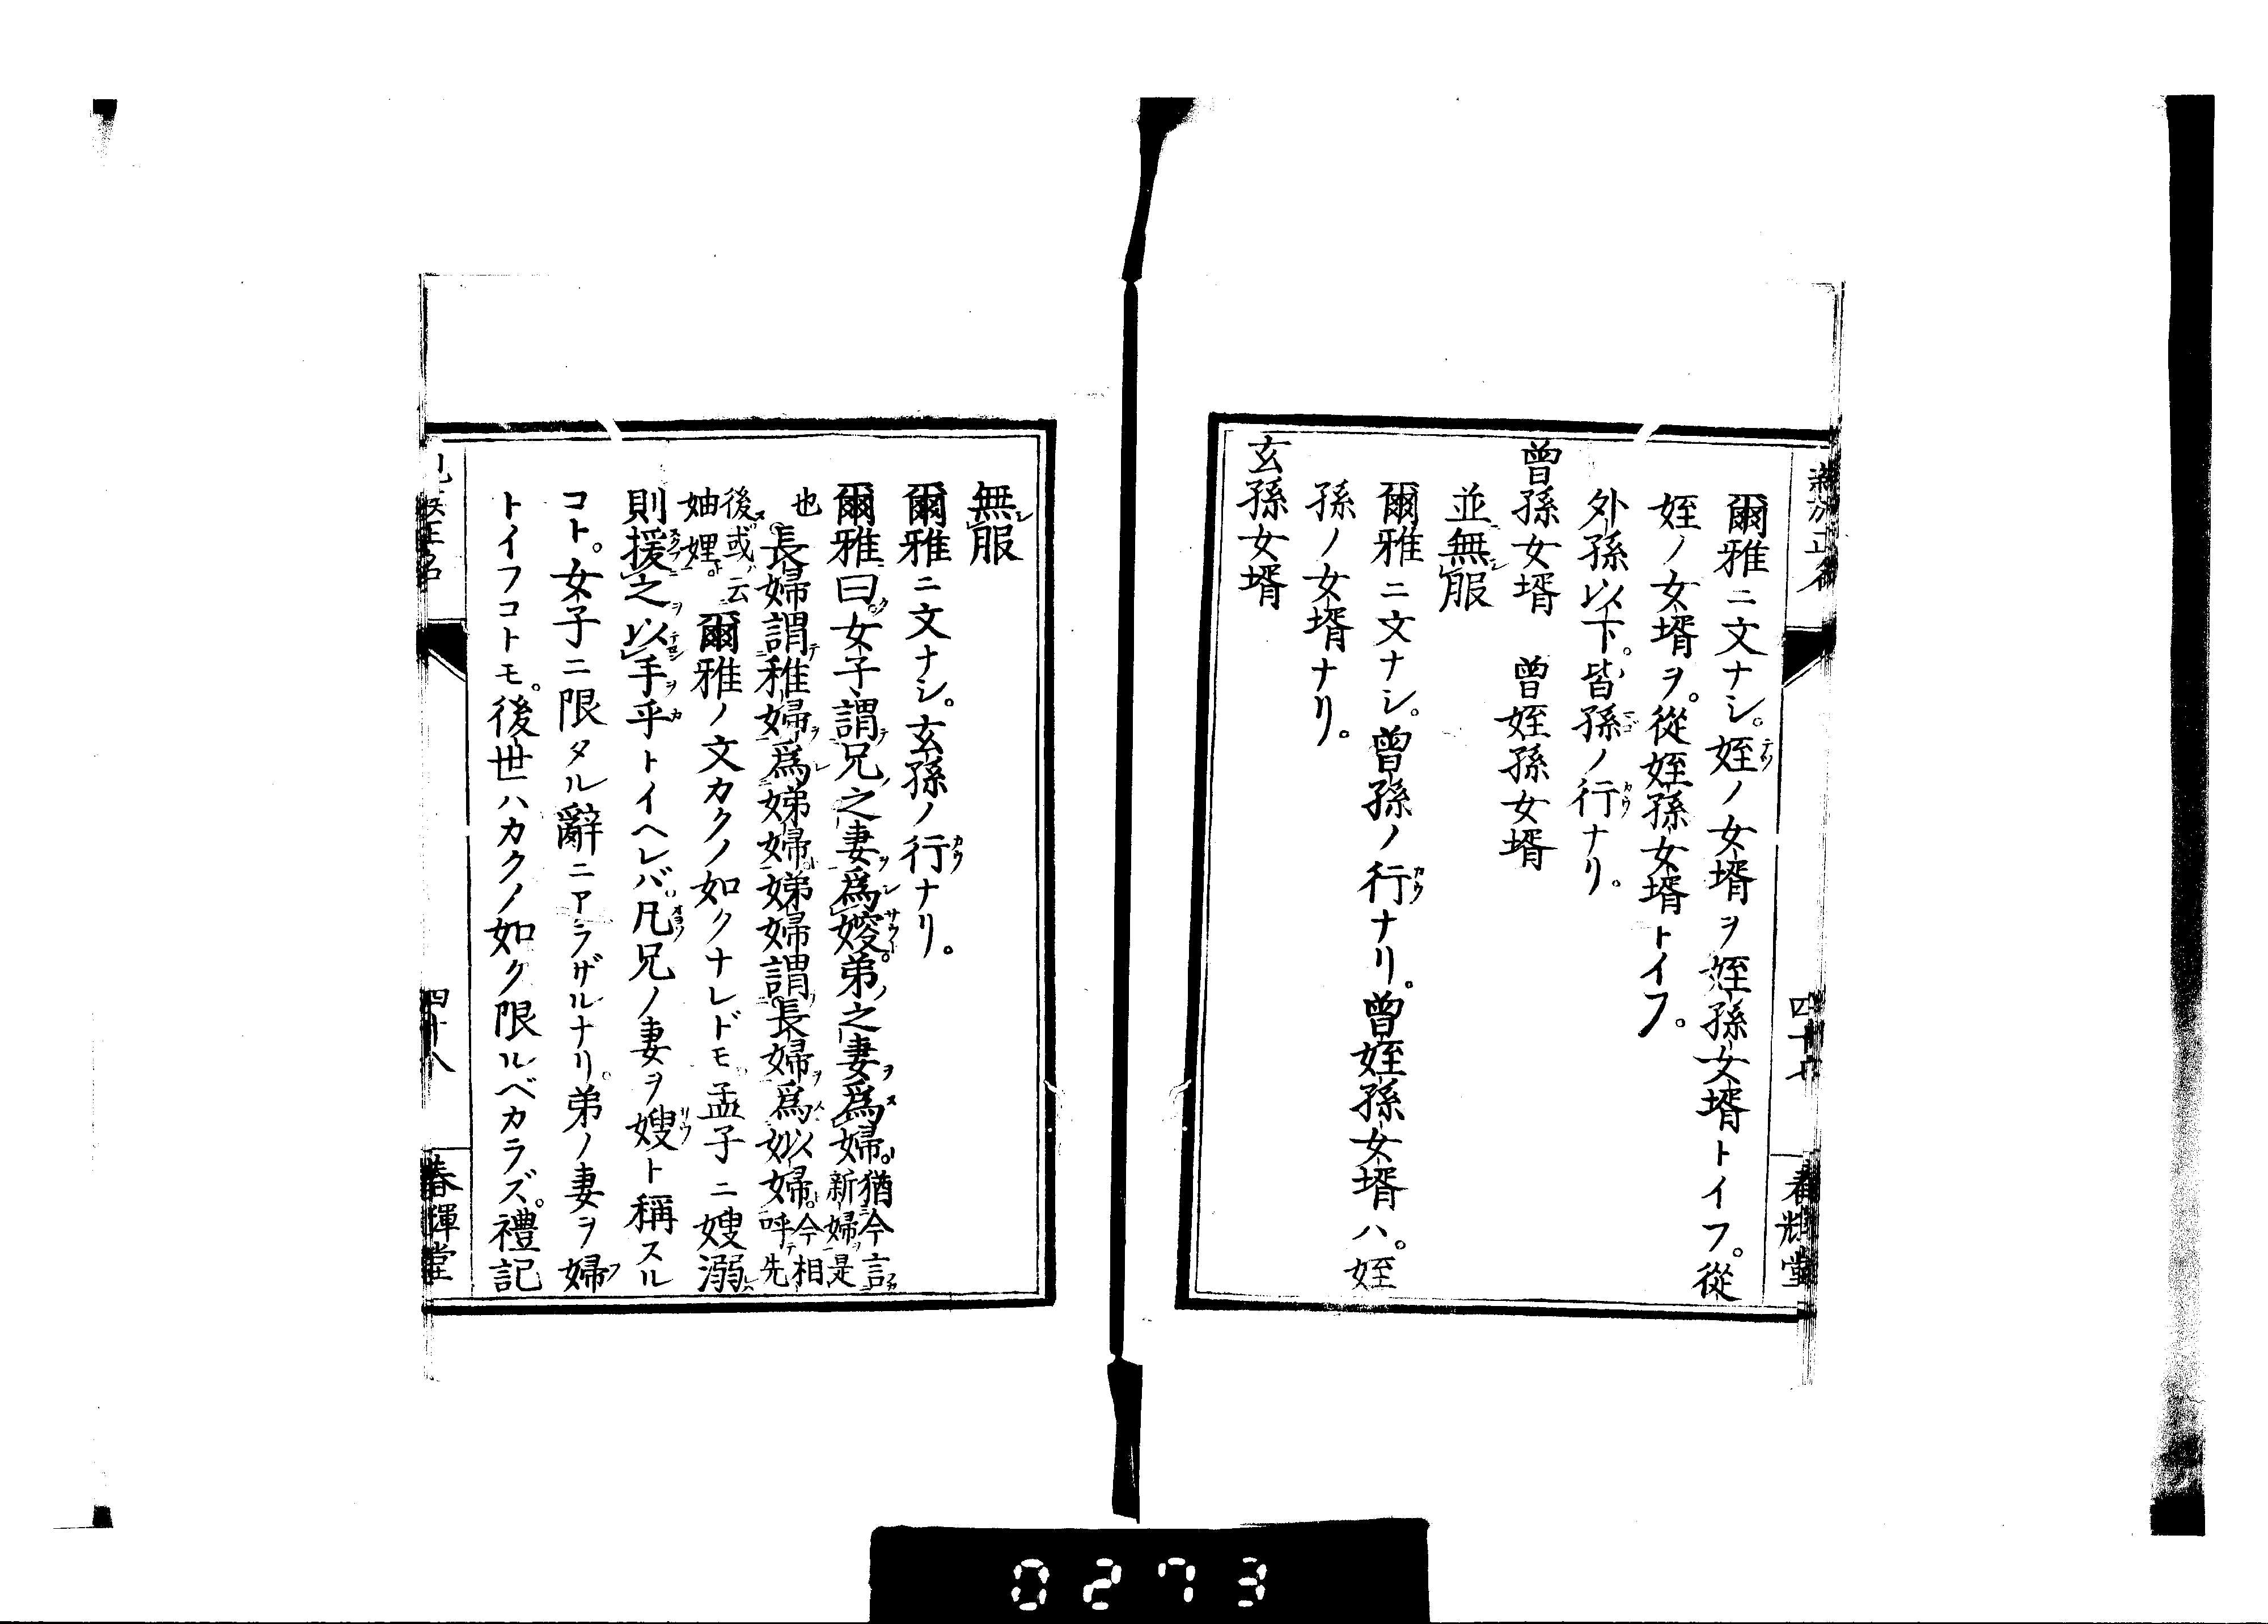 爾雅ニ文ナシ。姪ノ女壻ヲ姪孫女壻トイフ。從
姪ノ女壻ヲ。從姪孫女壻トイフ。
外孫以下。皆孫ノ行ナリ。
曾孫女壻　曾姪孫女壻
並無服
爾雅ニ文ナシ。曾孫ノ行ナリ。曾姪孫女壻ハ。姪
孫ノ女壻ナリ。
玄孫女壻
四十七
春輝堂
無服
爾雅ニ文ナシ。玄孫ノ行ナリ。
爾雅曰。女子謂兄之妻爲嫂。弟之妻爲婦。猶今言新婦是
也　長婦謂稚婦爲娣婦。娣婦謂長婦爲姒婦。今相呼先
後或云妯娌。爾雅ノ文カクノ如クナレドモ。孟子ニ嫂溺
則援之以手乎トイヘレバ。凡兄ノ妻ヲ嫂ト稱スル
コト。女子ニ限タル辭ニアラザルナリ。弟ノ妻ヲ婦
トイフコトモ。後世ハカクノ如ク限ルベカラズ。禮記
四十八
春輝堂
0273